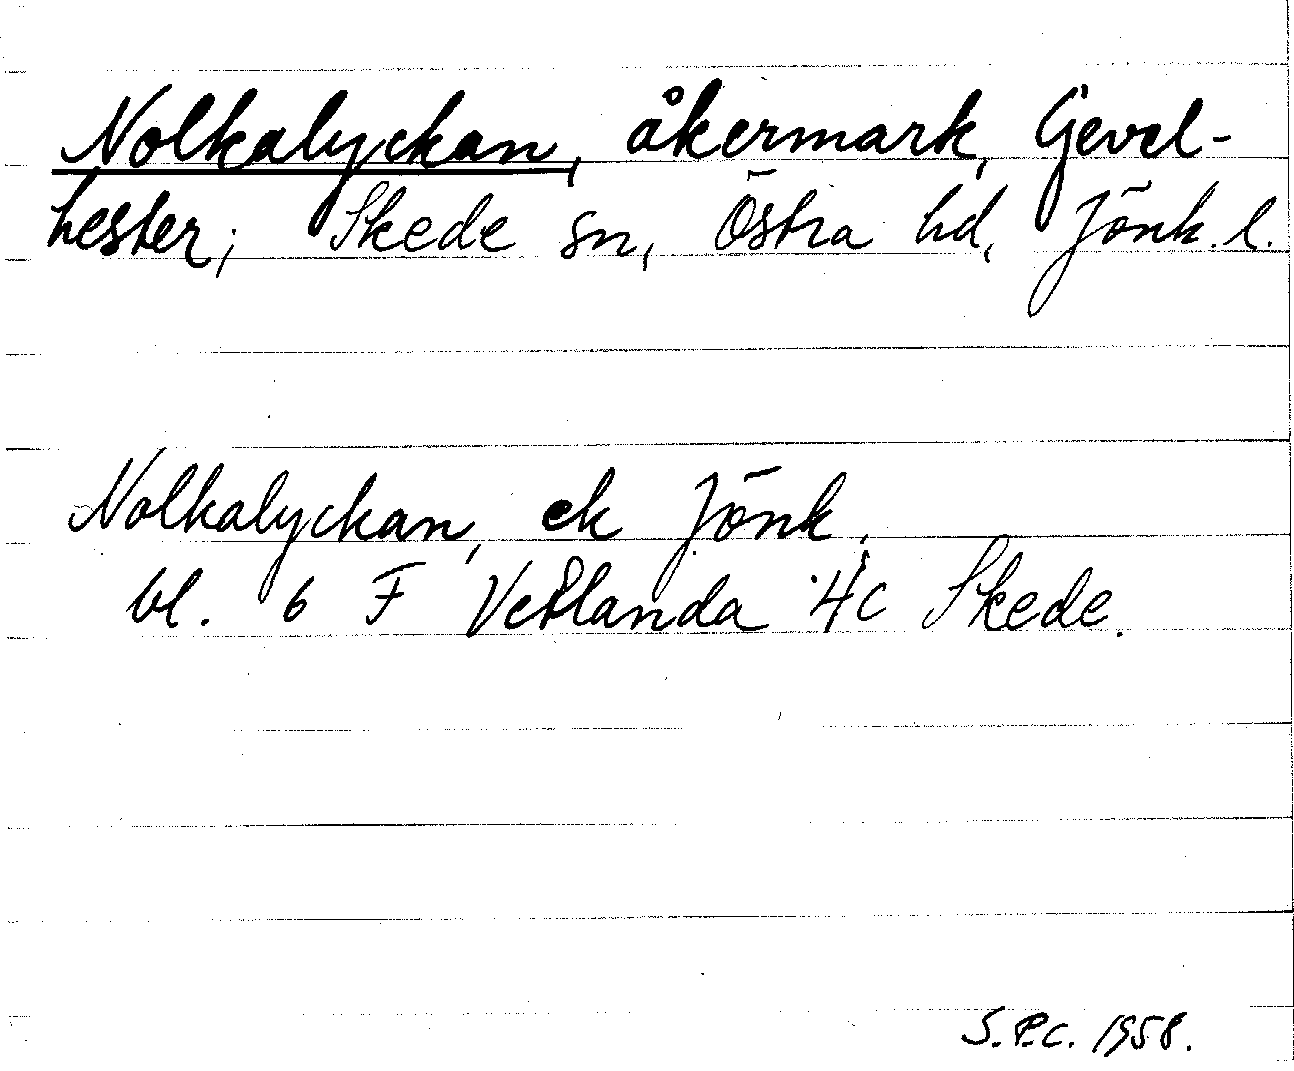 Nolkalyckan, åkermark, Gevel-
hester; Skede sn, Östra hd, Jönk. l.
Nolkalyckan, ek Jönk,
bl. 6 F Vetlanda 4c Skede.
S.P.C. 1958.